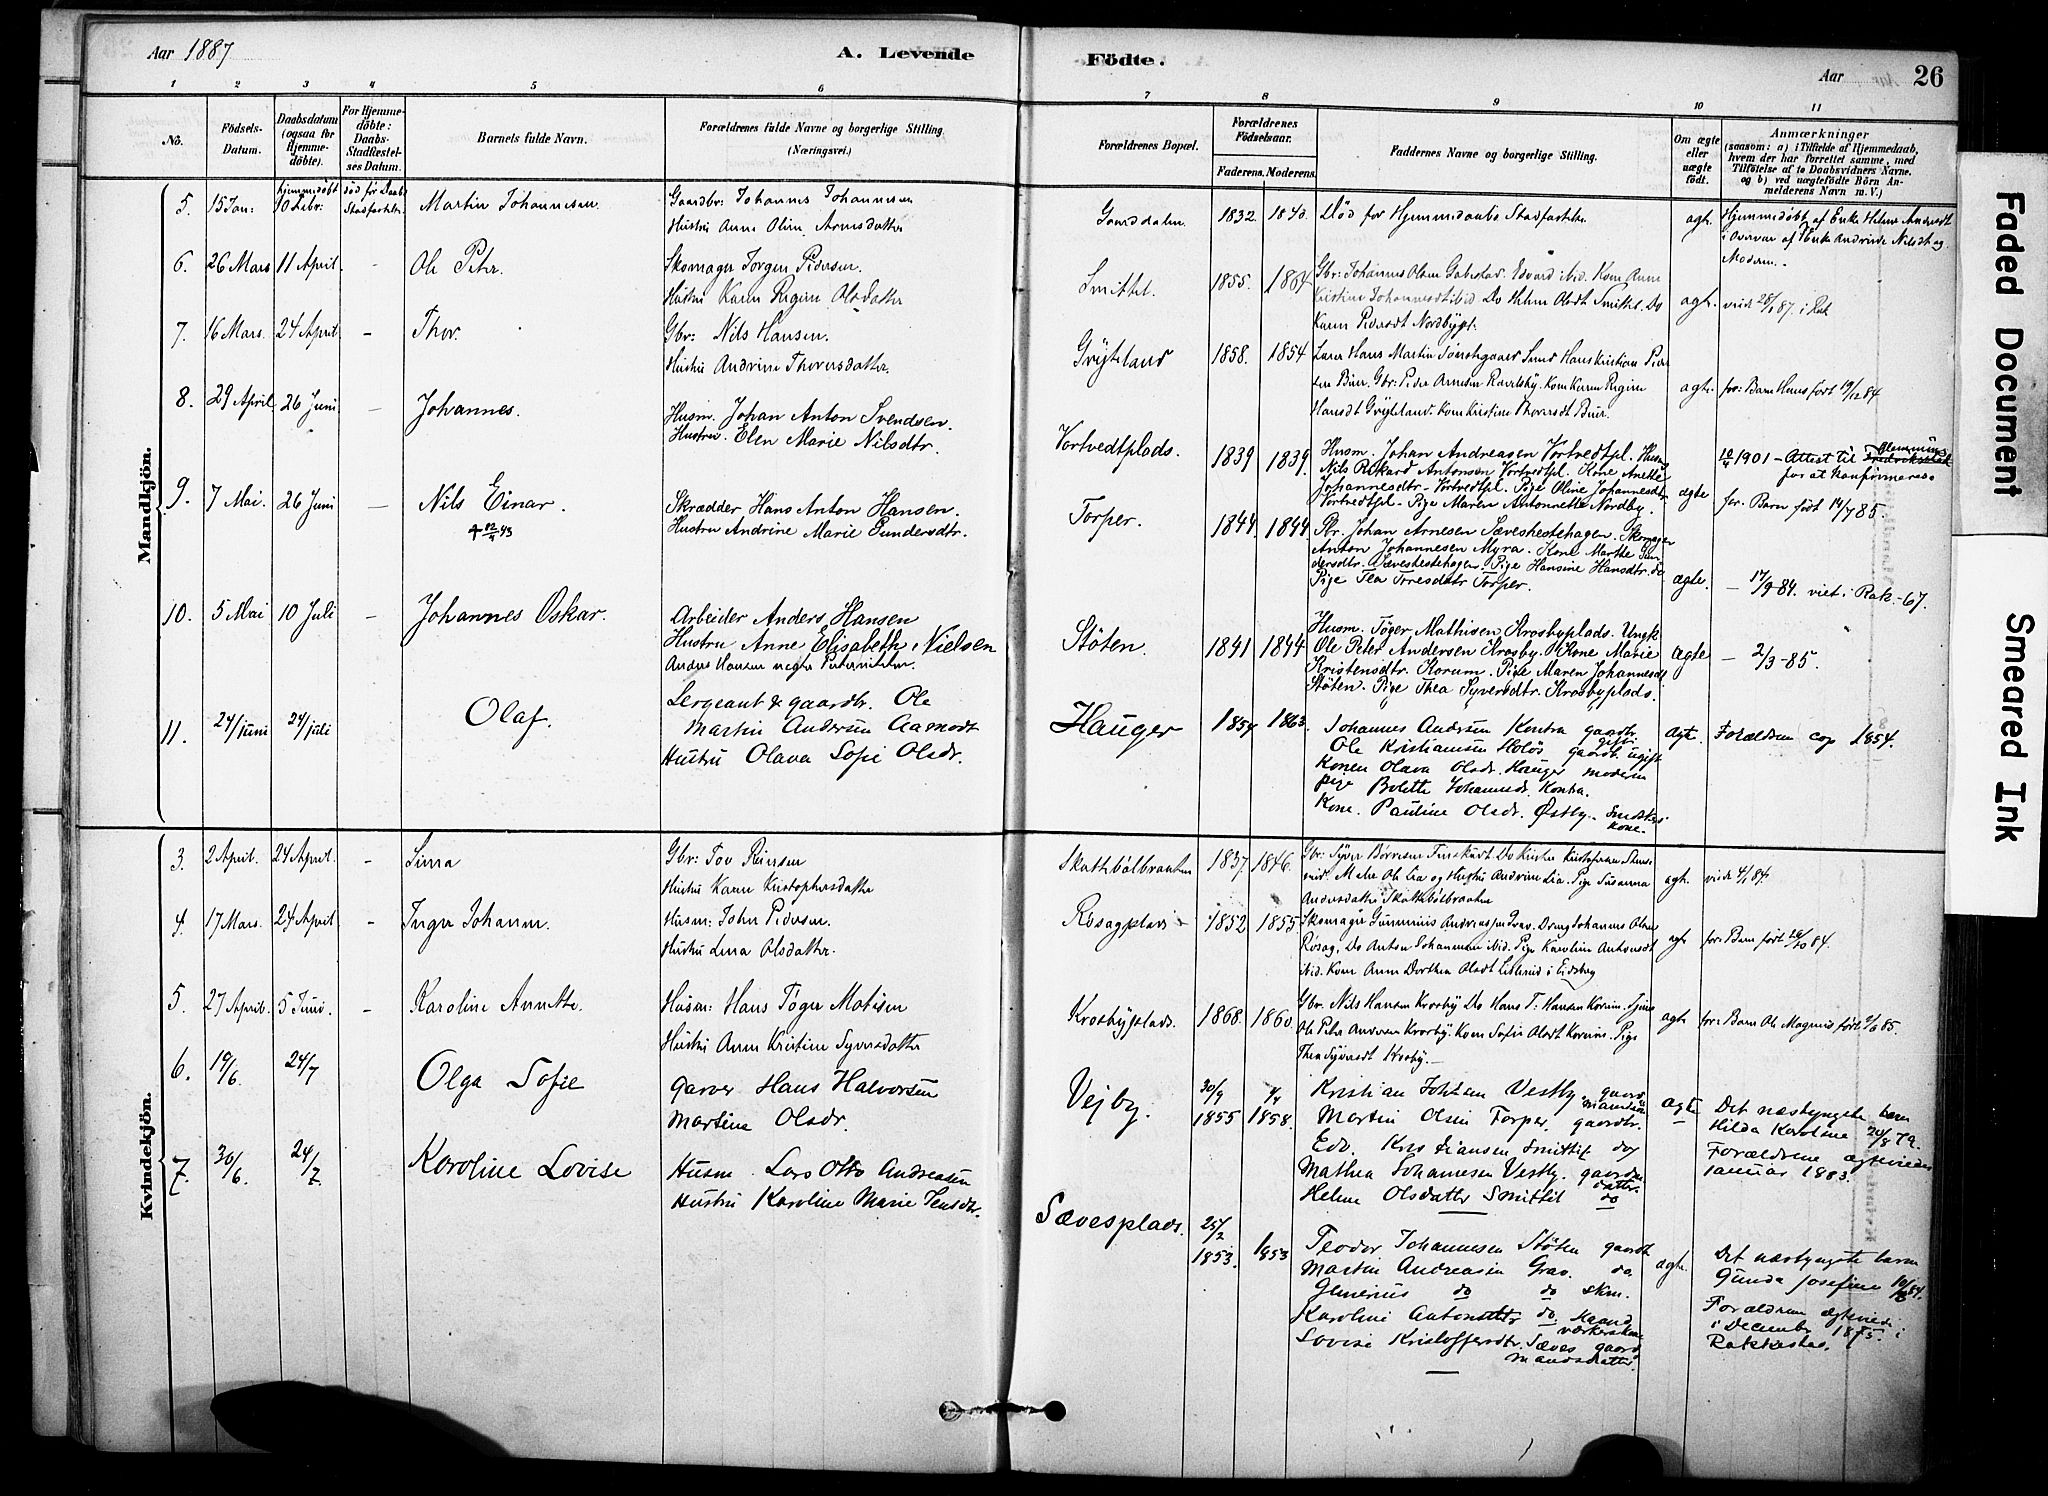 Aar 1887
A. Levende
Födte.
Aar
26
1 2 3 4 5 6 7 8 9 10 11
No.
Födsels-Datum.
Daabsdatum (ogsaa for Hjemmedöbte).
For Hjemmedöbte: Daabs-Stadfæstelses Datum.
Barnets fulde Navn.
Forældrenes fulde Navne og borgerlige Stilling.
(Næringsvei.)
Forældrenes Bopæl.
Forældrenes Födselsaar.
Faderens. Moderens.
Faddernes Navne og borgerlige Stilling.
Om ægte eller uægte födt.
Anmærkninger
(saasom: a) i Tilfælde af Hjemmedaab, hvem der har forrettet samme, med Tilföielse af to Daabsvidners Navne. og b) ved uægtefödte Börn Anmelderens Navn m. V.)
Mandkjön.
5. 15 Jan: hjemmedöbt 10 Febr. död för Daabs Stadfæstelse Martin Johannesen.
Gaardbr: Johannes Johannesen
Hustru Anne Oline Arnesdatter
Gaarddalen 1832 1843. Död for Hjemmedaabs Stadfæstelse
ægte.
Hjemmedøbt af Enke Helene Andersdt
i Overvær af Enke Andrine Nilsdt og
Moderen.
6. 26 Mars 11 April - Ole Peter.
Skomager Jörgen Pedersen.
Hustru Karen Regine Olsdatter
Smittil. 1855. 1864
Gbr: Johannes Olsen Gabestad. Edvard ibid. Kone Anne
Kristine Johannesdt ibid Do Helene Olsdt Smittil. Do
Karen Pedersdt Nordbypl.
ægte. viede 28/1 87. i Rak
7. 16 Mars. 24 April - Thor.
Gbr: Nils Hansen.
Hustru Andrine Thorersdatter.
1858. 1854
Lærer Hans Martin Sønstegaard Lund Hans Kristian Peder
sen Buer. Gbr: Peder Arnesen Ravelsby. Kone Karen Regine
Hansdt. Kone Kristine Thorersdt Buer.
ægte. for: Barn Hans født 19/12 84
8. 29 April 26 Juni - Johannes.
Husm. Johan Anton Svendsen.
Hustru. Elen Marie Nilsdtr.
Vortvedtplads. 1839 1839.
Husm. Johan Andreasen Vortvedtpl. Husm
Nils Rikard Antonsen Vortvedtpl. Kone Anette
Johannesdtr. Vortvedtpl. Pige Oline Johannesdtr
Vortvedtpl. Pige Maren Antonnette Nordby.
ægte
10/4 1901 - Attest til Fredrikstad Glemminge
for at konfirmeres.
for. Barn født 14/7 85.
9. 7 Mai. 26 Juni - Nils Einar.
+ 43
Skrædder Hans Anton Hansen.
Hustru Andrine Marie Gundersdtr.
Torper. 1844. 1844
Gbr. Johan Arnesen Sæveshestehagen. Skomager
Anton Johannesen Myra. Kone Marthe Gun
dersdtr. Sæveshestehagen. Pige Hansine Hansdtr. do
Pige Tea Toresdatr Torper.
ægte. - 17/9 84. viet i Rak. -67.
10. 5 Mai 10 Juli - Johannes Oskar.
Arbeider Anders Hansen
Hustru Anne Elisabeth Nielsen
Anders Hansen negter Paterniteten.
Støten. 1841 1844
Husm. Tøger Mathisen Krosbyplads. Ungk
Ole Peter Andersen Krosby. Kone Marie
Kristensdtr. Korum. Pige Maren Johannesdt
Støten. Pige Thea Syversdtr. Krosbyplads.
ægte - 2/3 -85.
11. 24/juni 24/juli Olaf.
Sergeant & gaardbr. Ole
Martin Andersen Aamodt
Hustru Olava Sofie Olsdr.
Hauger 1854 1863.
Johannes Andersen Kontra gaardbr.
Ole Kristiansen Holøs gaardbr. ugift
Konen Olava Olsdr. Hauger moderen
pige Bolette Johannesdr. Kontra.
Kone. Pauline Olsdr. Østby. Smedskone.
ægte. Forældrene cop 1854.
Kvindekjön.
3. 2 April. 24 April. - Lina
Gbr: Tov Reiersen
Hustru Karen Kristophersdatter
Skattebølbraaten 1837. 1846.
Gbr: Syver Børresen
Ole Lia og Hustru Andrine Lia. Pige Susanna
Andersdatter Skattebølbraaten
ægte. viede 4/1 84
4. 17 Mars. 24 April - Inga Johanne.
Husm: John Pedersen
Hustru Lina Olsdatter.
Røsægplads 1852 1855
Skomager Gunerius Andreasen Grav. Dreng Johannes Olsen
Røsæg. Do Anton Johannesen ibid. Pige Karoline Antonsdt
ibid. Kone Anne Dorthea Olsdt i Eidsberg
ægte for: Barn født 84.
5. 27 April. 5 Juni. - Karoline Annette.
Husm: Hans Tøger Matisen
Hustru Anne Kristine Syversdatter
Krosbyplads. 1868. 1860.
Gbr. Nils Hansen Krosby Do Hans T. Hansen Korum.
Ole Peter Andersen Krosby. Kone Sofie Olsdt Korum. Pige
Thea Syversdt Krosby. -
ægte for: Barn Ole Magnus født 85.
6. 19/6. 24/7 Olga Sofie
Garver Hans Halvorsen
Martine Olsdr.
Vejby. 30/9 1855 9/4 1858.
Kristian Johansen Vestby. gaardmandssøn
Martin Olsen Torper. gaardbr.
Edv. Kristiansen Smittil do
Mathea Johannesen Vestby. gaarddatter.
Helene Olsdatter Smittil do
ægte
Det næstyngste barn
Hilda Karoline 20/8 79.
Forældrene ægteviede
januar 1883.
7. 30/6. 24/7. Karoline Lovise
Husm Lars Otto Andreasen
Hustru Karoline Marie Jensdtr.
Sævesplads. 25/2. 1853. 1853
Teodor Johannesen Støten gaardt
Martin Andreasen Grav. do
Gunerius do do skm.
Karoline Antonsdtr do. Haandværkerskone
Lovise Kristoffersdtr. Sæves gaardmandsdatter.
ægte.
Det næstyngste barn
Gunda Josefine 84.
Forældrene ægteviede
i December 1875. i
Rakkestad.
Faded Document
Smeared Ink